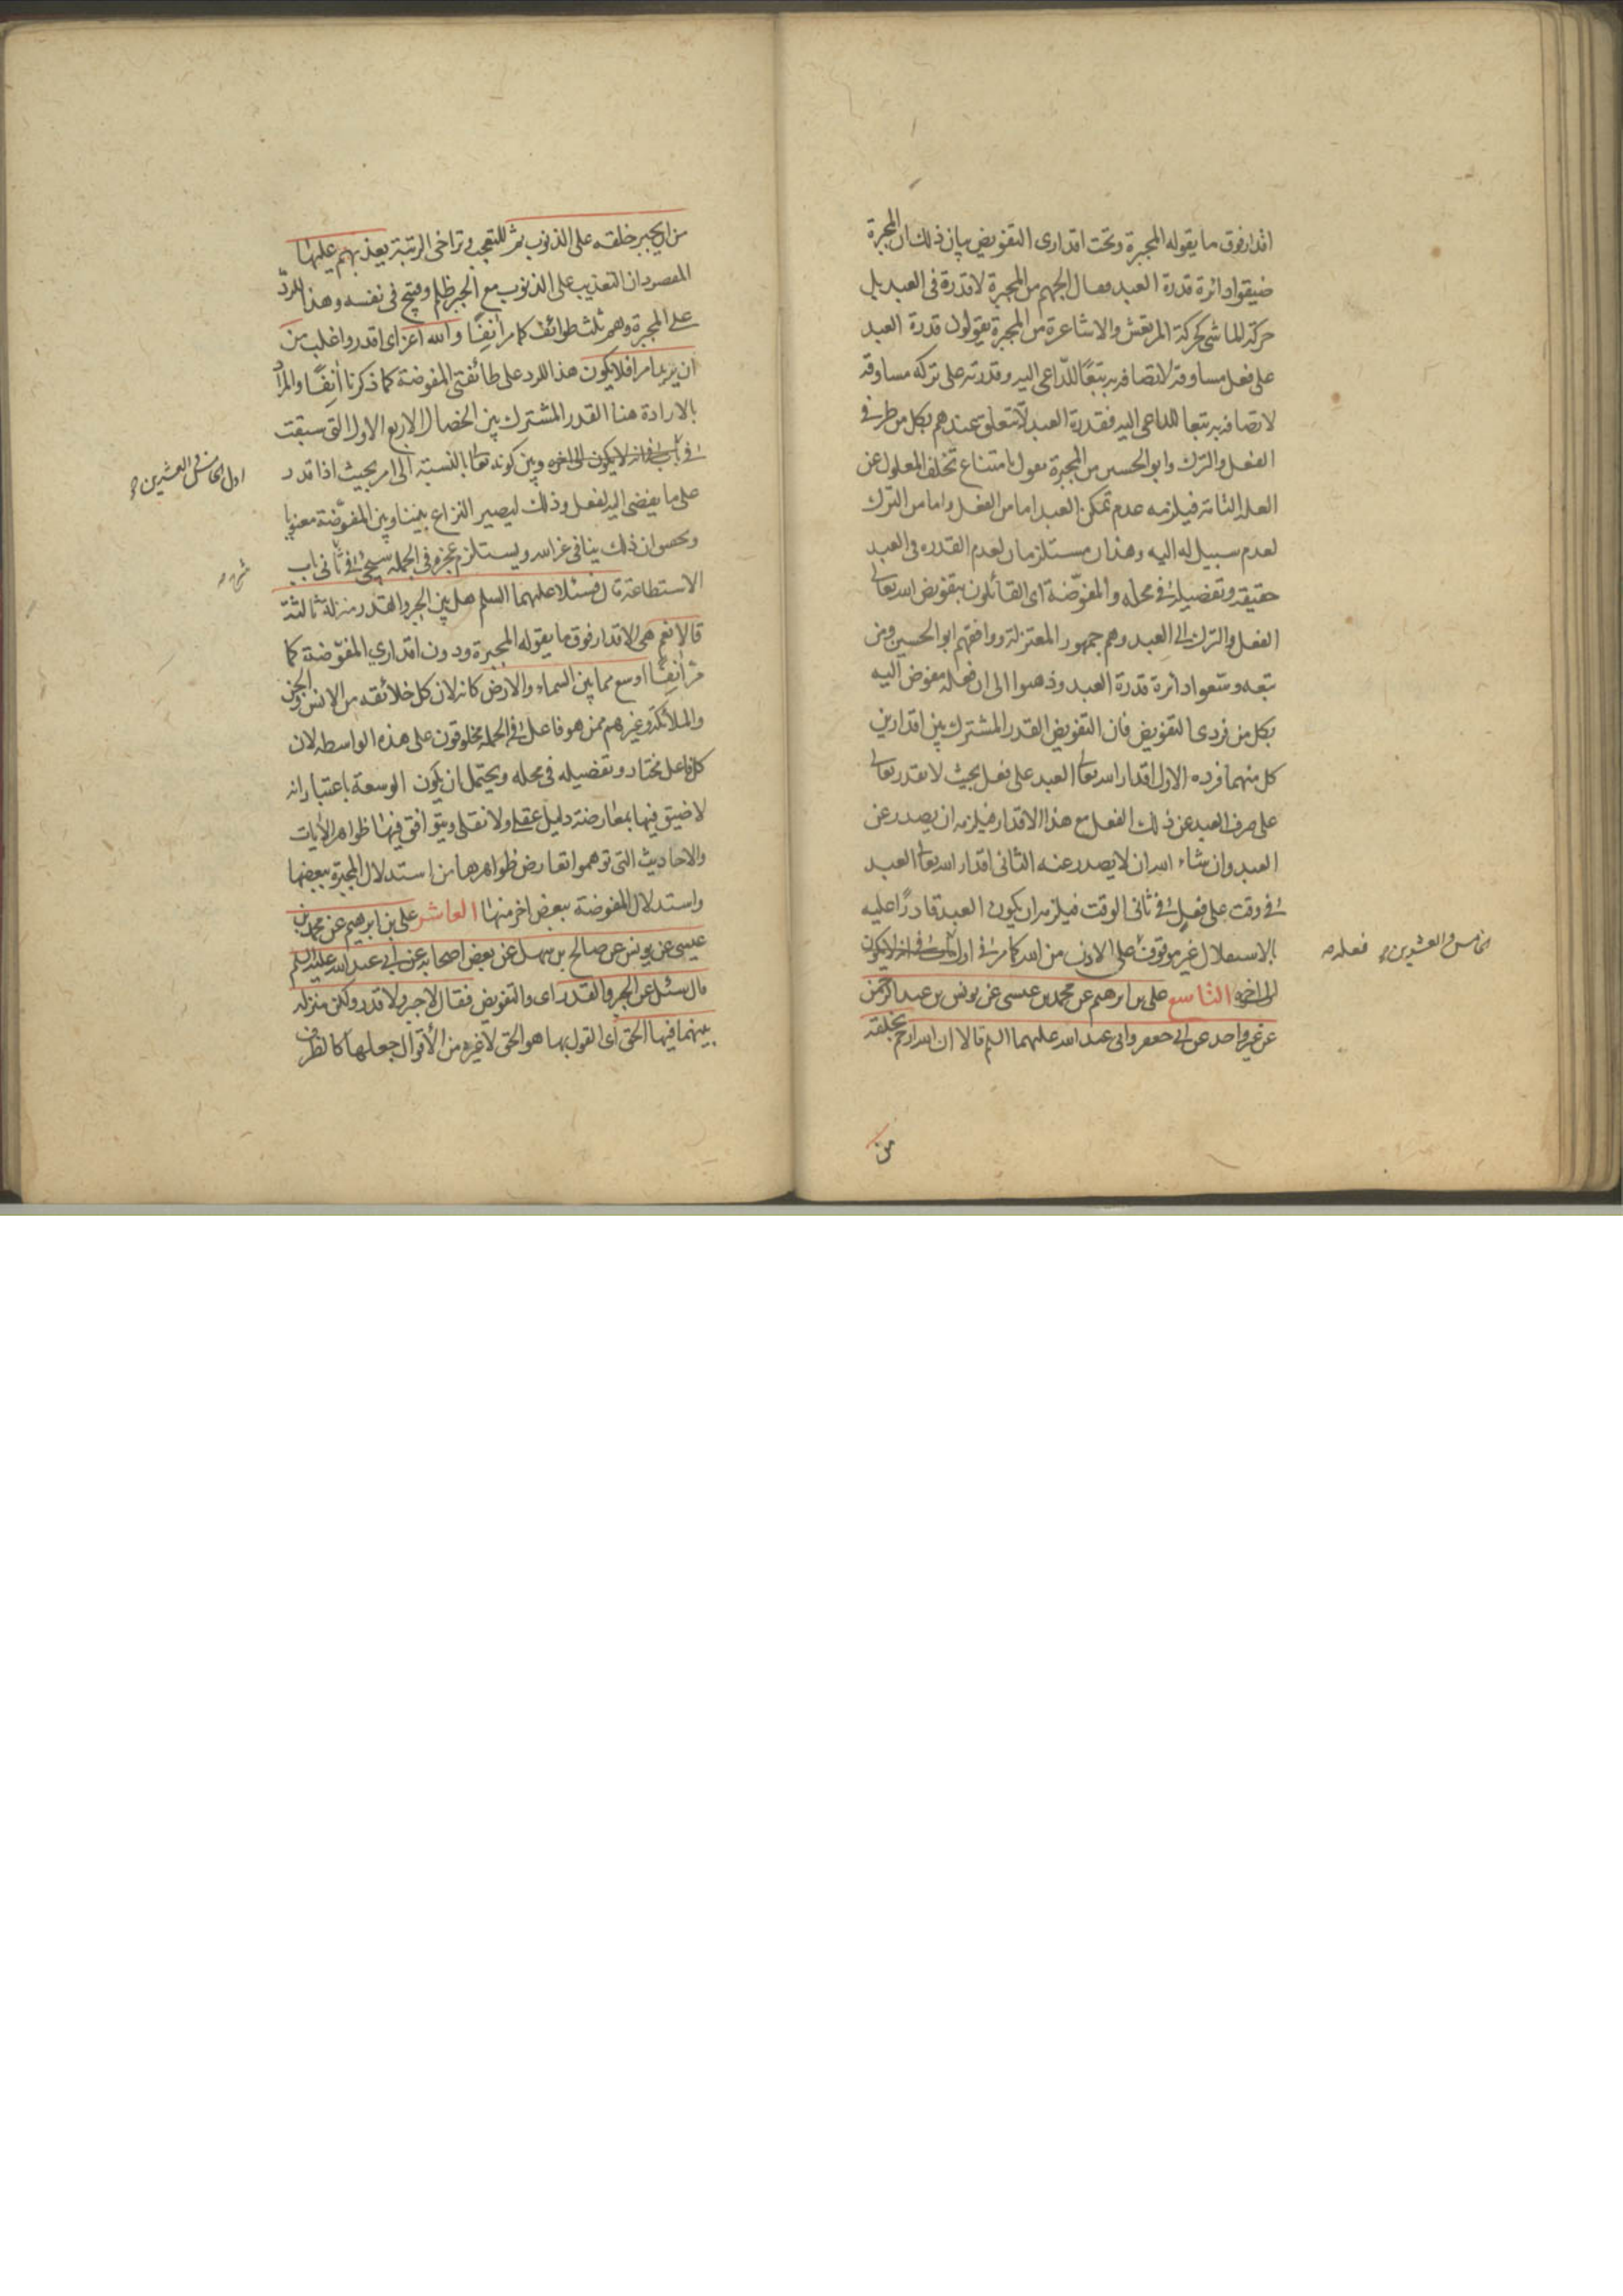 اقدار فوق ما يقوله المجبرة وتحت اقدارى التفويض بيان ذلك ان المجبرة
ضيقوا دائرة قدرة العبد فقال الجهم من المجبرة لا قدرة فى العبد بل
حركة الماشى كحركة المرتعش والاشاعرة من المجبرة يقولون قدرة العبد
على فعل مساوقة لاتصافه به تبعًا للداعى اليه وقدرته على تركه مساوقة
لاتصافه به تبعا للداعى اليه فقدرة العبد لا تتعلق عندهم بكل من طرفى
الفعل والترك وابو الحسين من المجبرة يقول بامتناع تخلف المعلول عن
العلة التامة فيلزمه عدم تمكن العبد اما من الفعل واما من الترك
لعدم سبيل له اليه وهذان مستلزمان لعدم القدرة فى العبد
حقيقة وتفصيله فى محله والمفوّضة اى القائلون بتفويض الله تعالى
الفعل والترك الى العبد وهم جمهور المعتزلة ووافقهم ابو الحسين ومن
تبعه وسّعوا دائرة قدرة العبد وذهبوا الى ان فعله مفوض اليه
بكل من فردى التفويض فان التفويض القدر المشترك بين اقدارين
كل منهما فرده الاول اقدار الله تعالى العبد على فعل بحيث لا يقدر تعالى
على صرف العبد عن ذلك الفعل مع هذا الاقدار فيلزمه ان يصدر عن
العبد وان شاء الله ان لا يصدر عنه الثانى اقدار الله تعالى العبد
فى وقت على فعل فى ثانى الوقت فيلزمه ان يكون العبد قادرًا عليه
بالاستقلال غير موقوف على الاذن من الله كما مر فى اول باب فى انه لا يكون
الى اخره التاسع على بن ابرهيم عن محمد بن عيسى عن يونس بن عبد الرحمن
عن غير واحد عن ابى جعفر وابى عبد الله عليهما السلم قالا ان الله ارحم بخلقه
الخامس والعشرين فعله
من
من ان يجبر خلقه على الذنوب ثم للتعجب وتراخى الرتبة يعذبهم عليها
المقصود ان التعذيب على الذنوب مع الجبر ظلم وقبيح فى نفسه وهذا للردّ
على المجبرة وهم ثلث طوائف كما مر انفًا والله اعز اى اقدر واغلب من
ان يريد امرا فلا يكون هذا للرد على طائفتى المفوضة كما ذكرنا انفًا والمراد
بالارادة هنا القدر المشترك بين الخصال الاربع الاول التى سبقت
فى باب فى انه لا يكون الى اخره وبين كونه تعالى بالنسبة الى امر بحيث اذا قدر
على ما يفضى اليه لفعل وذلك ليصير النزاع بيننا وبين المفوّضة معنويا
ان ذلك ينافى عز الله ويستلزم عجزه فى الجملة سيجئ فى ثانى باب
الاستطاعة قال فسئلا عليهما السلم هل بين الجبر والقدر منزلة ثالثة
قالا نعم هى الاقدار فوق ما يقوله المجبرة ودون اقدارى المفوّضة كما
مر انفًا اوسع مما بين السماء والارض كانه لان كل خلائقه من الانس والجن
والملائكة وغيرهم ممن هو فاعل فى الجملة مخلوقون على هذه الواسطة لان
كل فاعل مختار وتفصيله فى محله ويحتمل ان يكون الوسعة باعتبار انه
لا ضيق فيها بمعارضة دليل عقلى ولا نقلى ويتوافق فيها ظواهر الايات
والاحاديث التى توهموا تعارض ظواهرها من استدلال المجبرة ببعضها
واستدلال المفوضة ببعض اخر منها العاشر على بن ابرهيم عن محمد بن
عيسى عن يونس عن صالح بن سهل عن بعض اصحابه عن ابى عبد الله عليه السلم
قال سئل عن الجبر والقدر اى والتفويض فقال لا جبر ولا قدر ولكن منزلة
بينهما فيها الحق اى القول بها هو الحق لا غيره من الاقوال جعلها كالظرف
اول الخامس والعشرين